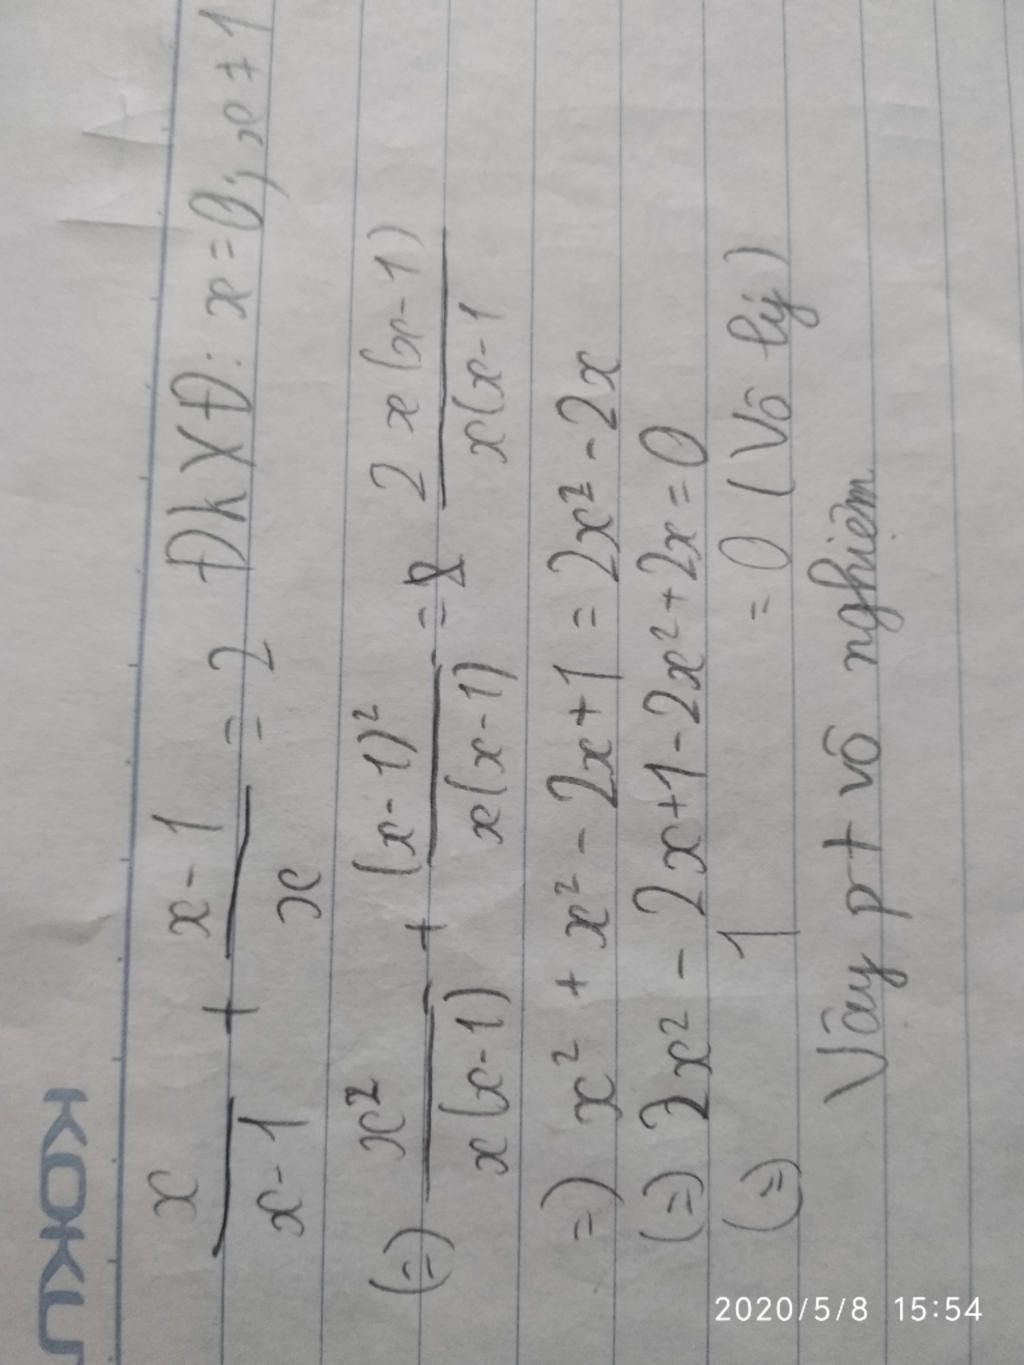 KOKU
x/(x-1) + (x-1)/x = 2 ĐKXĐ: x=0; x≠1
(=) x²/(x(x-1)) + (x-1)²/(x(x-1)) = 2x(x-1)/(x(x-1
=) x² + x² - 2x+1 = 2x² - 2x
(=) 2x² - 2x+1-2x²+2x=0
(=) 1 = 0 (Vô lý)
Vây pt vô nghiệm
2020/5/8 15:54